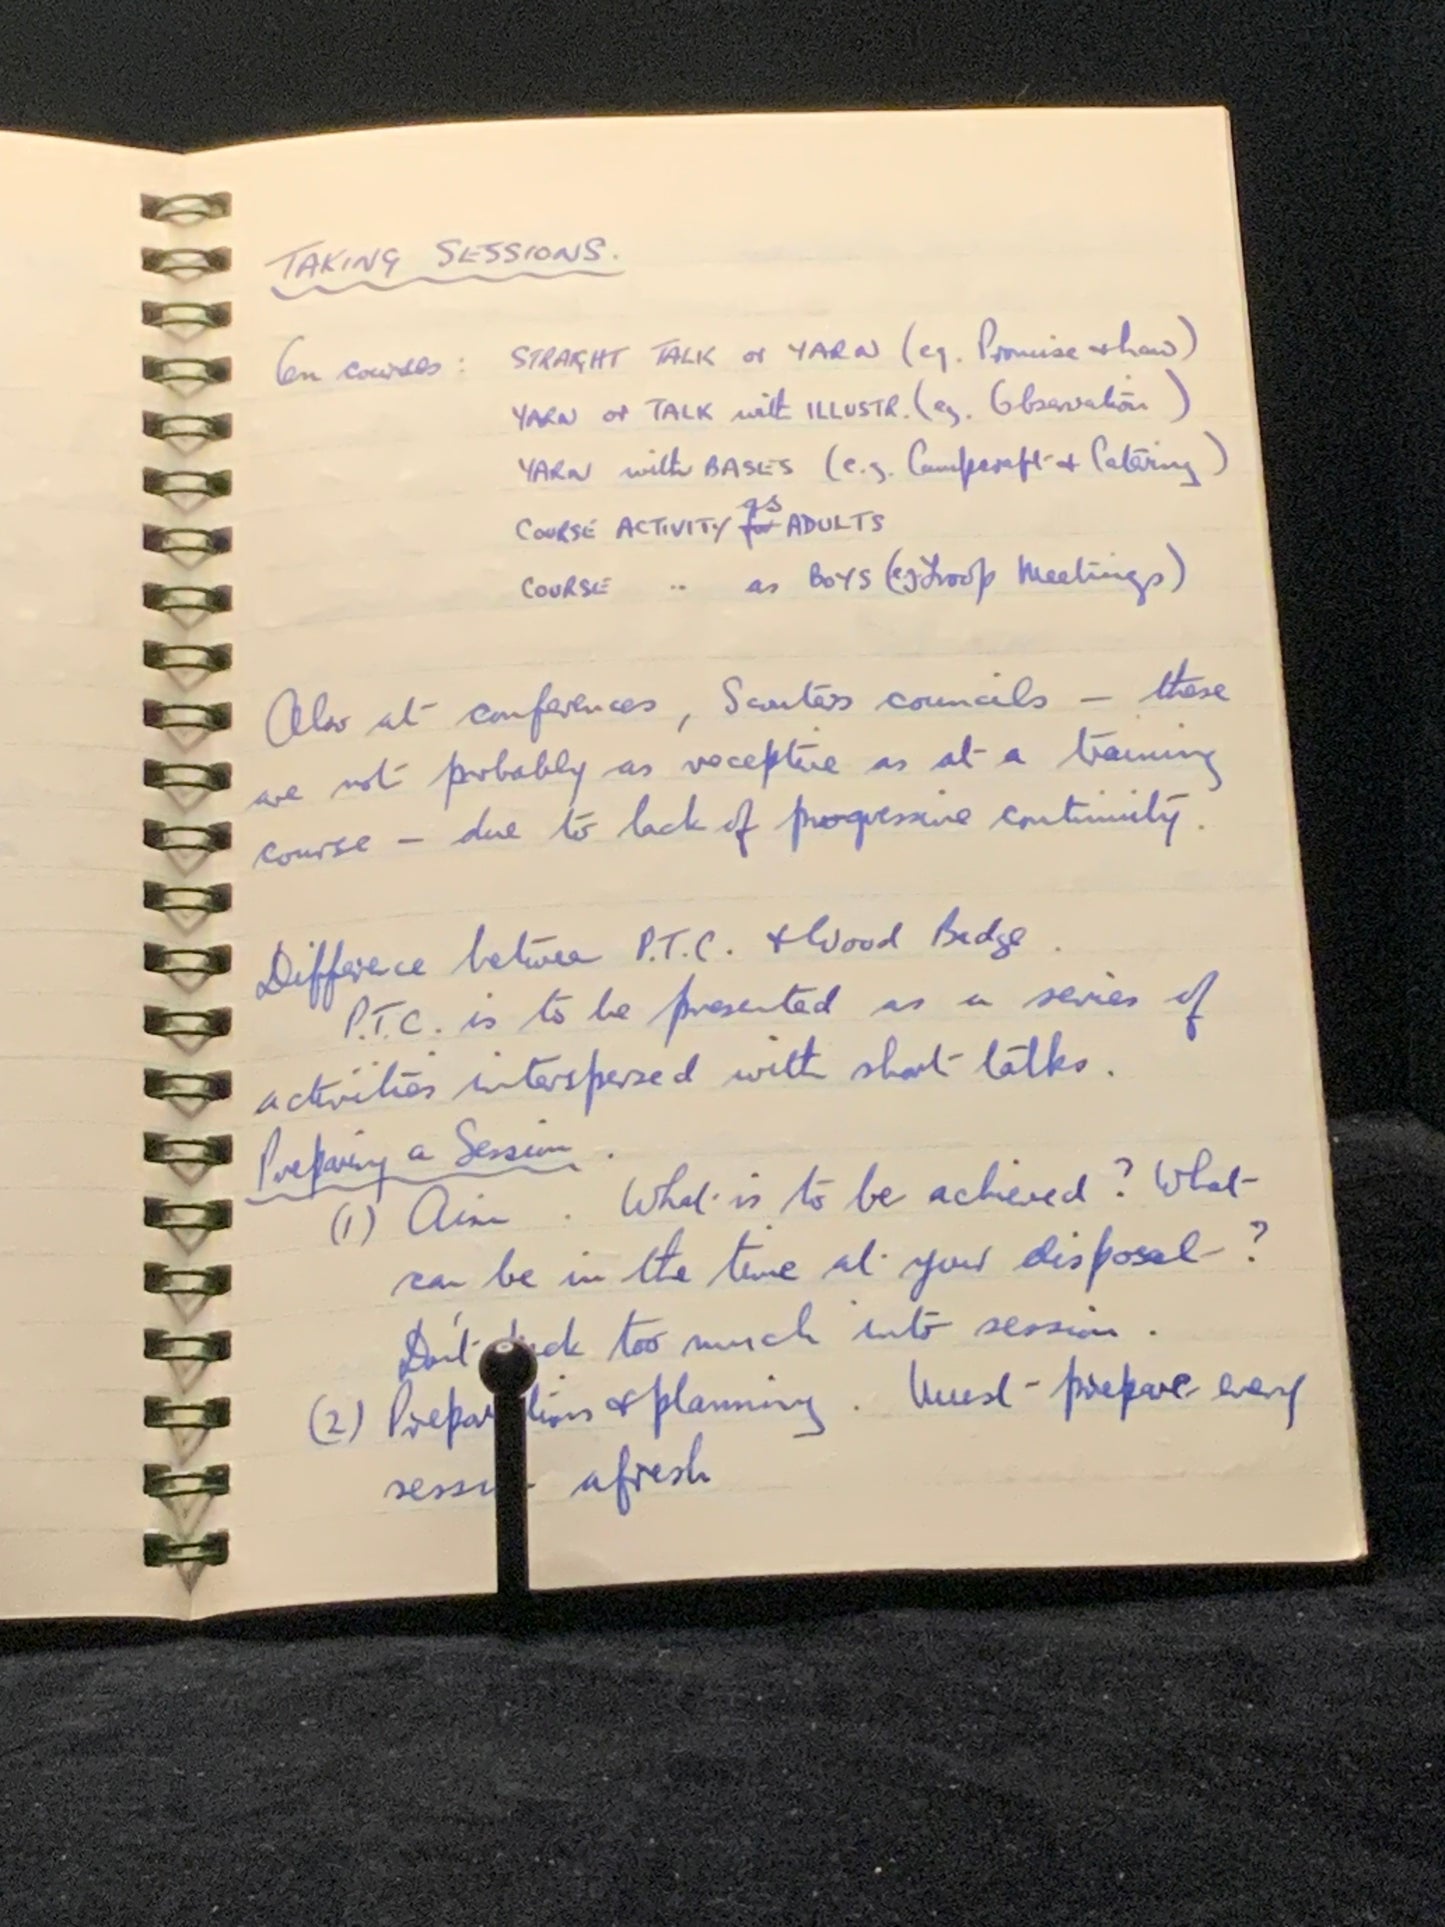 TAKING SESSIONS.
On courses: STRAIGHT TALK or YARN (eg. Promise & Law)
YARN or TALK with ILLUSTR. (eg. Observation)
YARN with BASES (e.g. Campcraft & Catering)
COURSE ACTIVITY for as ADULTS
COURSE " as BOYS (eg Troop Meetings)
Also at conferences, Scouters councils – these
are not probably as receptive as at a training
course – due to lack of progressive continuity.
Difference between P.T.C. & Wood Badge.
P.T.C. is to be presented as a series of
activities interspersed with short talks.
Preparing a Session.
(1) Aim. What is to be achieved? What
can be in the time at your disposal?
Don't too much into session.
(2) Preparation & planning. Must prepare every
session afresh